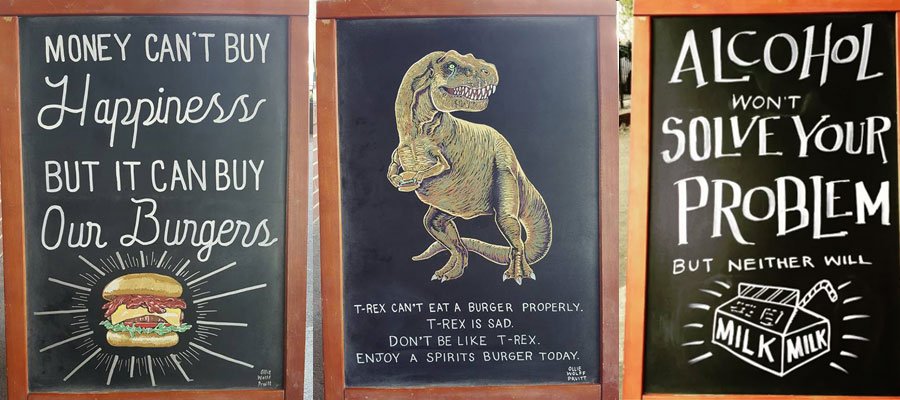 MONEY CAN'T BUY
Happiness
BUT IT CAN BUY
Our Burgers
OLLIE
WOLFF
PRUITT
T-REX CAN'T EAT A BURGER PROPERLY.
T-REX IS SAD.
DON'T BE LIKE T-REX.
ENJOY A SPIRITS BURGER TODAY.
OLLIE
WOLFF
PRUITT
ALCOHOL
WON'T
SOLVE YOUR
PROBLEM
BUT NEITHER WILL
MILK MILK